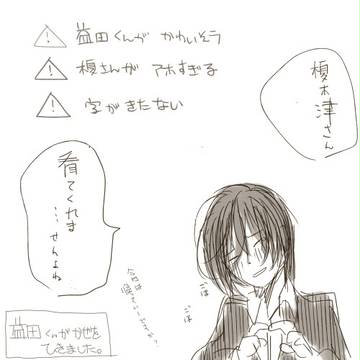 ⚠ 益田くんが かわいそう
⚠ 榎さんが アホすぎる
⚠ 字がきたない
榎木津さん
看てくれま
…せんよね
ごほ
ごほ
今日は
寝ていいですか?
益田くんがかぜを
ひきました。